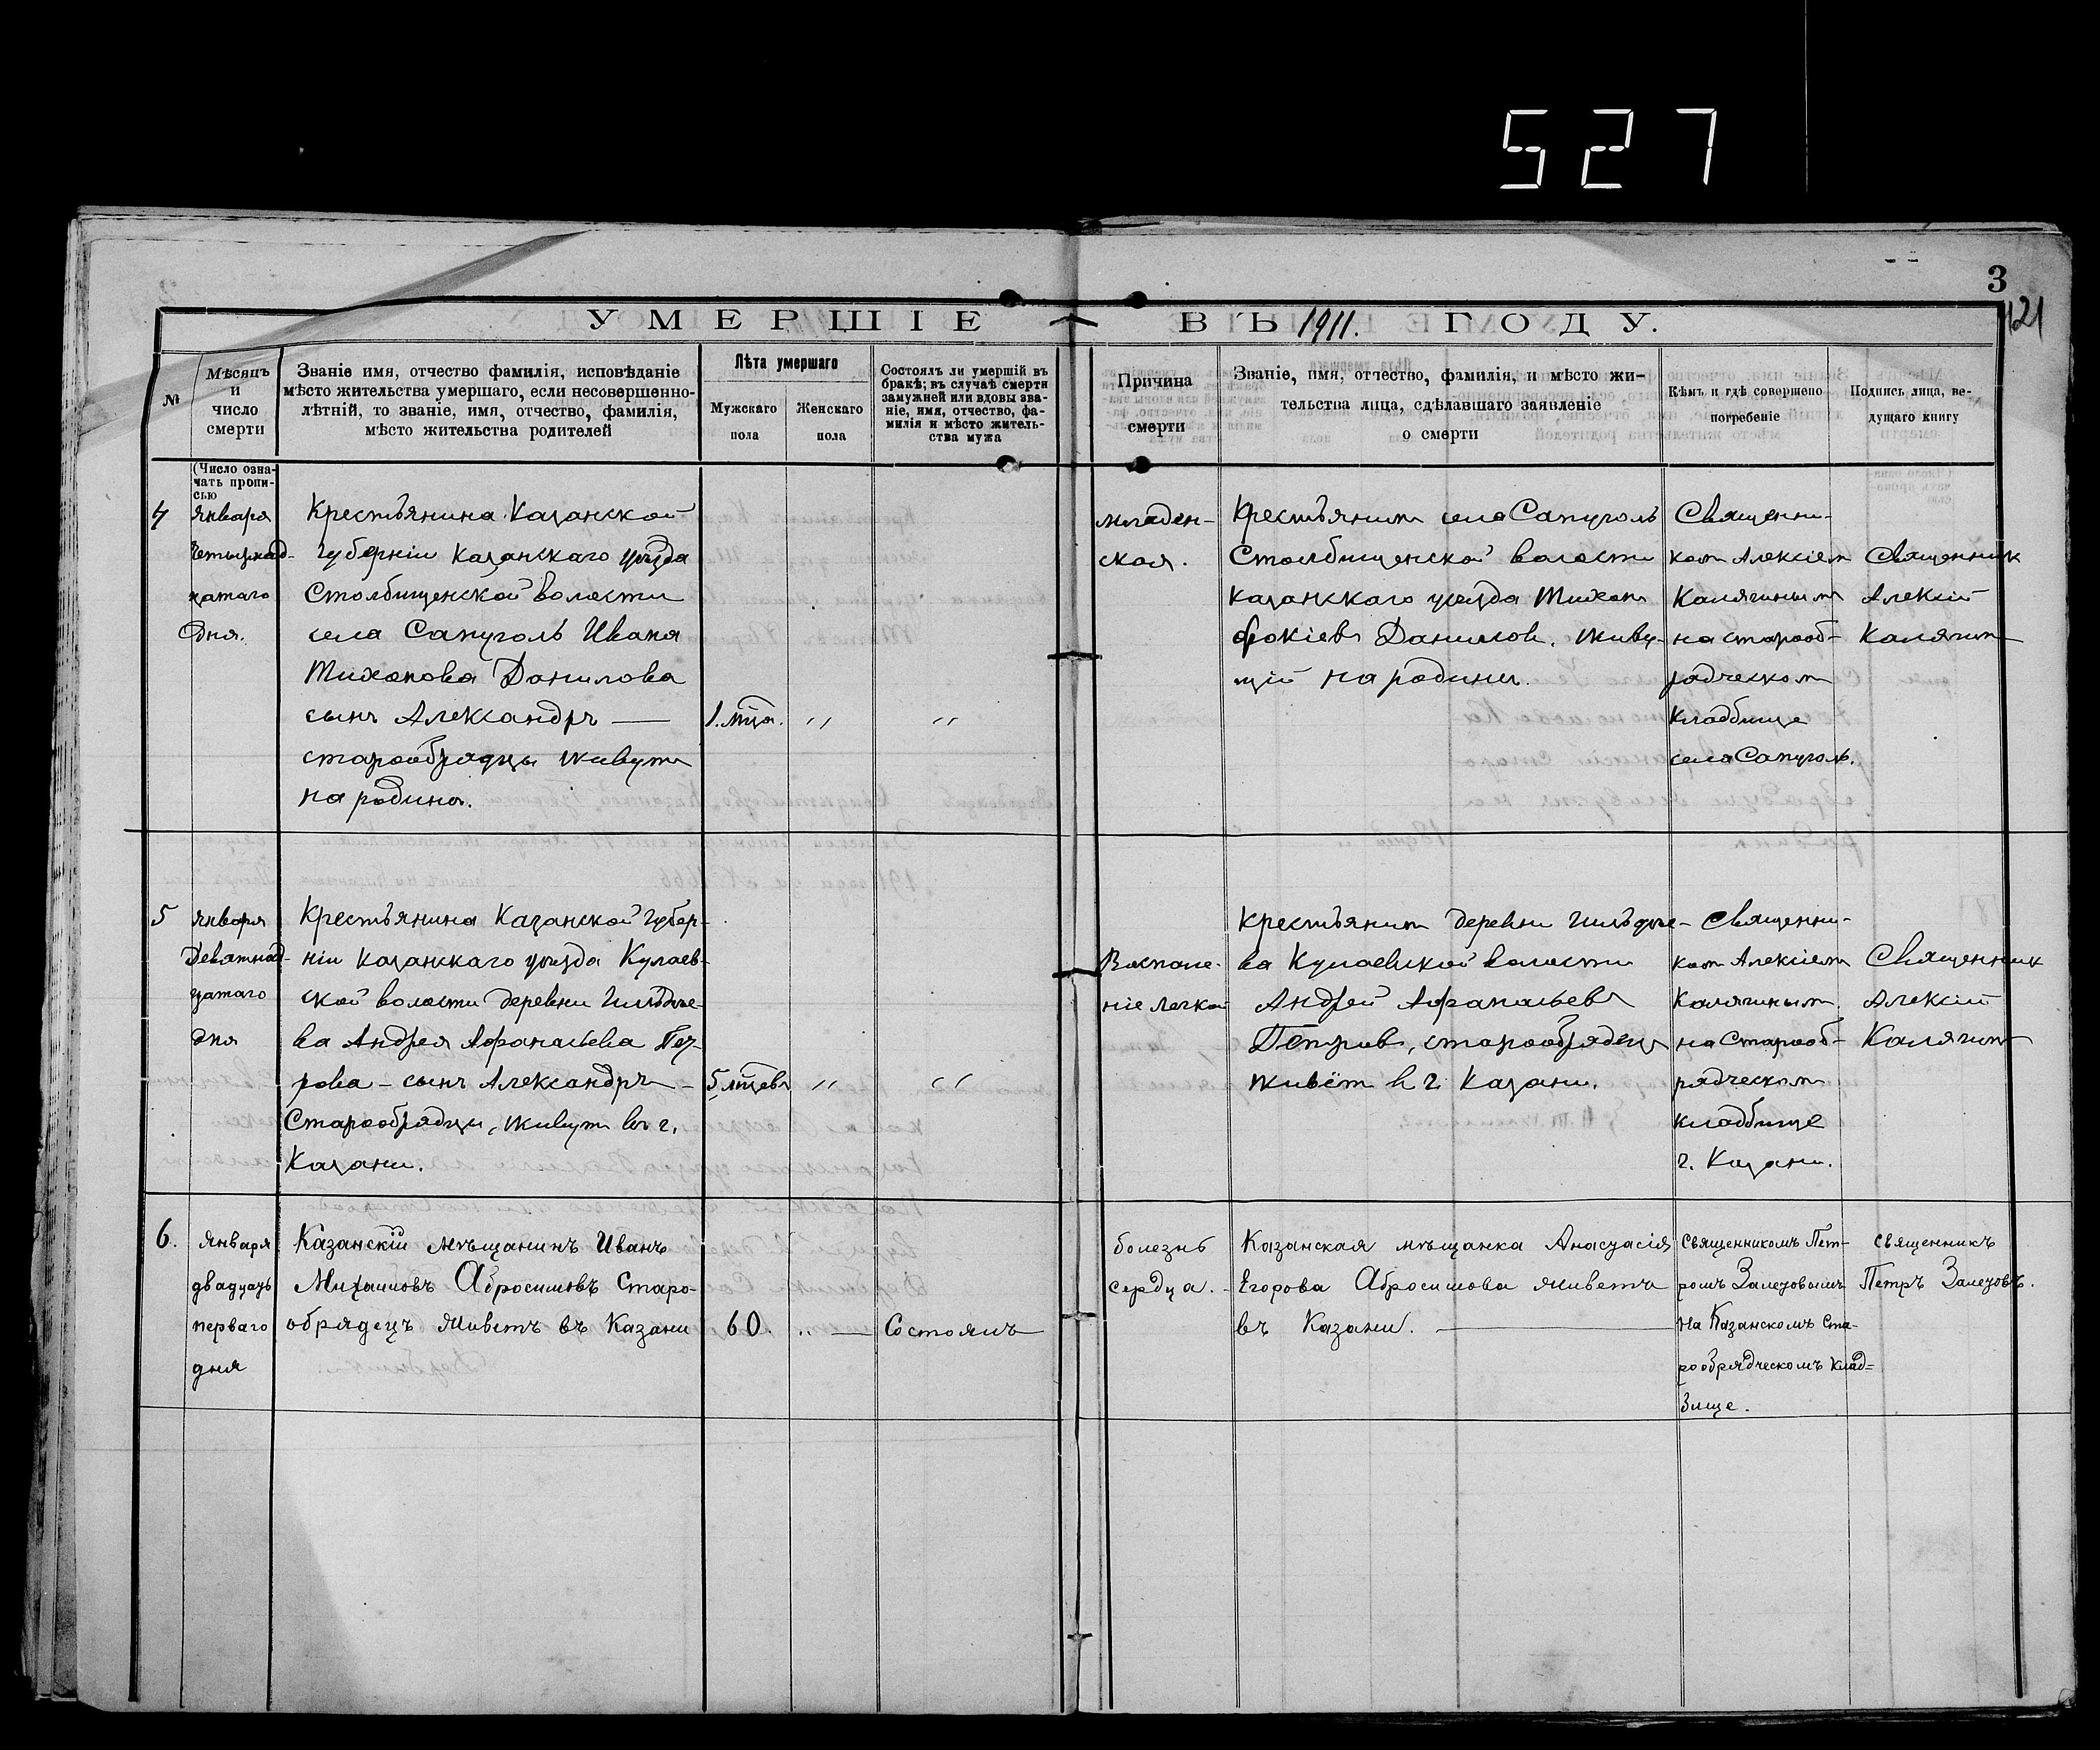 527
3
121
УМЕРШІЕ ВЪ 1911. ГОДУ.
№
Мѣсяцъ
и
число
смерти
Званіе имя, отчество фамилія, исповѣданіе
мѣсто жительства умершаго, если несовершенно-
лѣтній, то званіе, имя, отчество, фамилія,
мѣсто жительства родителей
Лѣта умершаго
Мужскаго
пола
Женскаго
пола
Состоялъ ли умершій въ
бракѣ; въ случаѣ смерти
замужней или вдовы зва-
ніе, имя, отчество, фа-
милія и мѣсто житель-
ства мужа
Причина
смерти
Званіе, имя, отчество, фамилія, и мѣсто жи-
тельства лица, сдѣлавшаго заявленіе
о смерти
Кѣмъ и гдѣ совершено
погребеніе
Подпись лица, ве-
дущаго книгу
(Число озна-
чать пропи-
сью
4
Января
Четырнад-
цатаго
дня.
Крестьянина Казанской
губерніи Казанскаго уѣзда
Столбищенской волости
села Сапуголь Ивана
Тихонова Данилова
сынъ Александръ —
старообрядцы живутъ
на родинѣ.
1. мѣца.
"
"
младен-
ская.
Крестьянинъ села Сапуголь
Столбищенской волости
Казанскаго уѣзда Тихонъ
Фокіевъ Даниловъ. живу-
щій на родинѣ.
Священни-
комъ Алексіемъ
Калягинымъ
на старооб-
рядческомъ
кладбище
села Сапуголь.
Священникъ
Алексій
Калягинъ
5
Января
Девятнад-
цатаго
дня
Крестьянина Казанской губер-
ніи Казанскаго уѣзда Кулаев-
ской волости деревни Гильдѣе-
ва Андрея Афанасьева Пет-
рова - сынъ Александръ -
Старообрядцы, живутъ въ г.
Казани.
5. мѣцевъ
"
"
Воспале-
ніе легкой
Крестьянинъ деревни Гильдѣе-
ва Кулаевской волости
Андрей Афанасьевъ
Петровъ, старообрядецъ
живётъ в г. Казани.
Священни-
комъ Алексіемъ
Калягинымъ.
на Старооб-
рядческомъ
кладбище
г. Казани.
Священникъ
Алексій
Калягинъ
6.
Января
двадцать
перваго
дня
Казанскій мѣщанинъ Иванъ
Михаиловъ Абросимовъ Старо-
обрядецъ живетъ въ Казани
60.
" —
Состоялъ
болезнь
сердца.
Казанская мѣщанка Анастасія
Егорова Абросимова живетъ
въ Казани. —
Священникомъ Пет-
ромъ Залетовымъ
на Казанскомъ Ста-
рообрядческомъ клад=
бище.
Священникъ
Петръ Залетовъ.